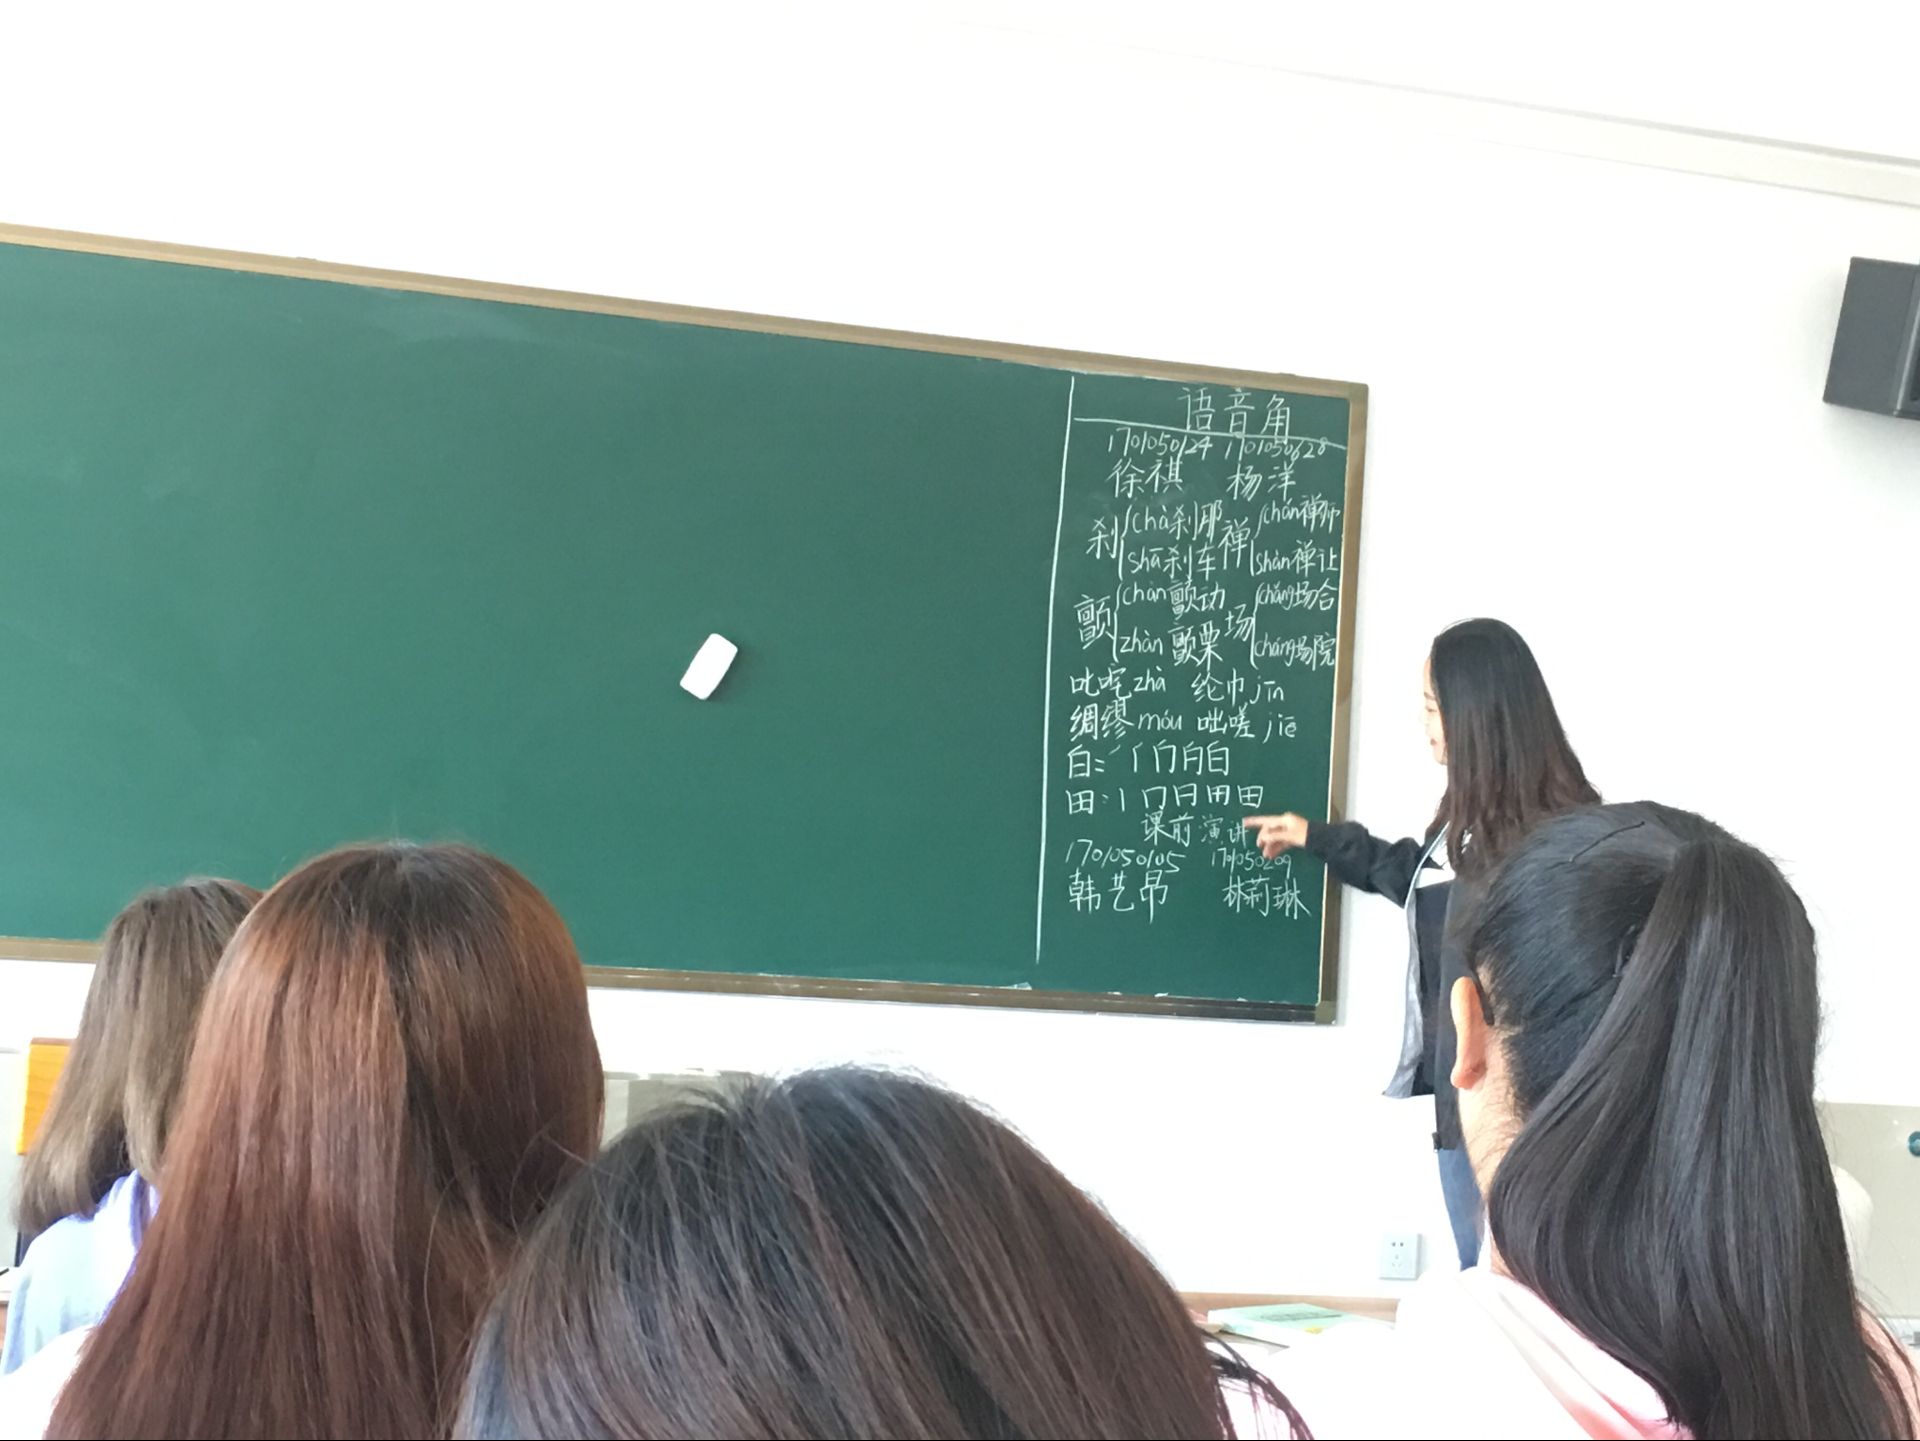 语音角
1701050124 1701050628
徐祺 杨洋
刹{chà刹那 禅{chán禅师
shā刹车 shàn禅让
颤{chàn颤动 场{chǎng场合
zhàn颤栗 cháng场院
叱咤zhà 纶巾jīn
绸缪móu 咄嗟jiē
白:丿亻冂白白
田:丨冂日用田
课前演讲
1701050105 1701050209
韩艺昂 林莉琳